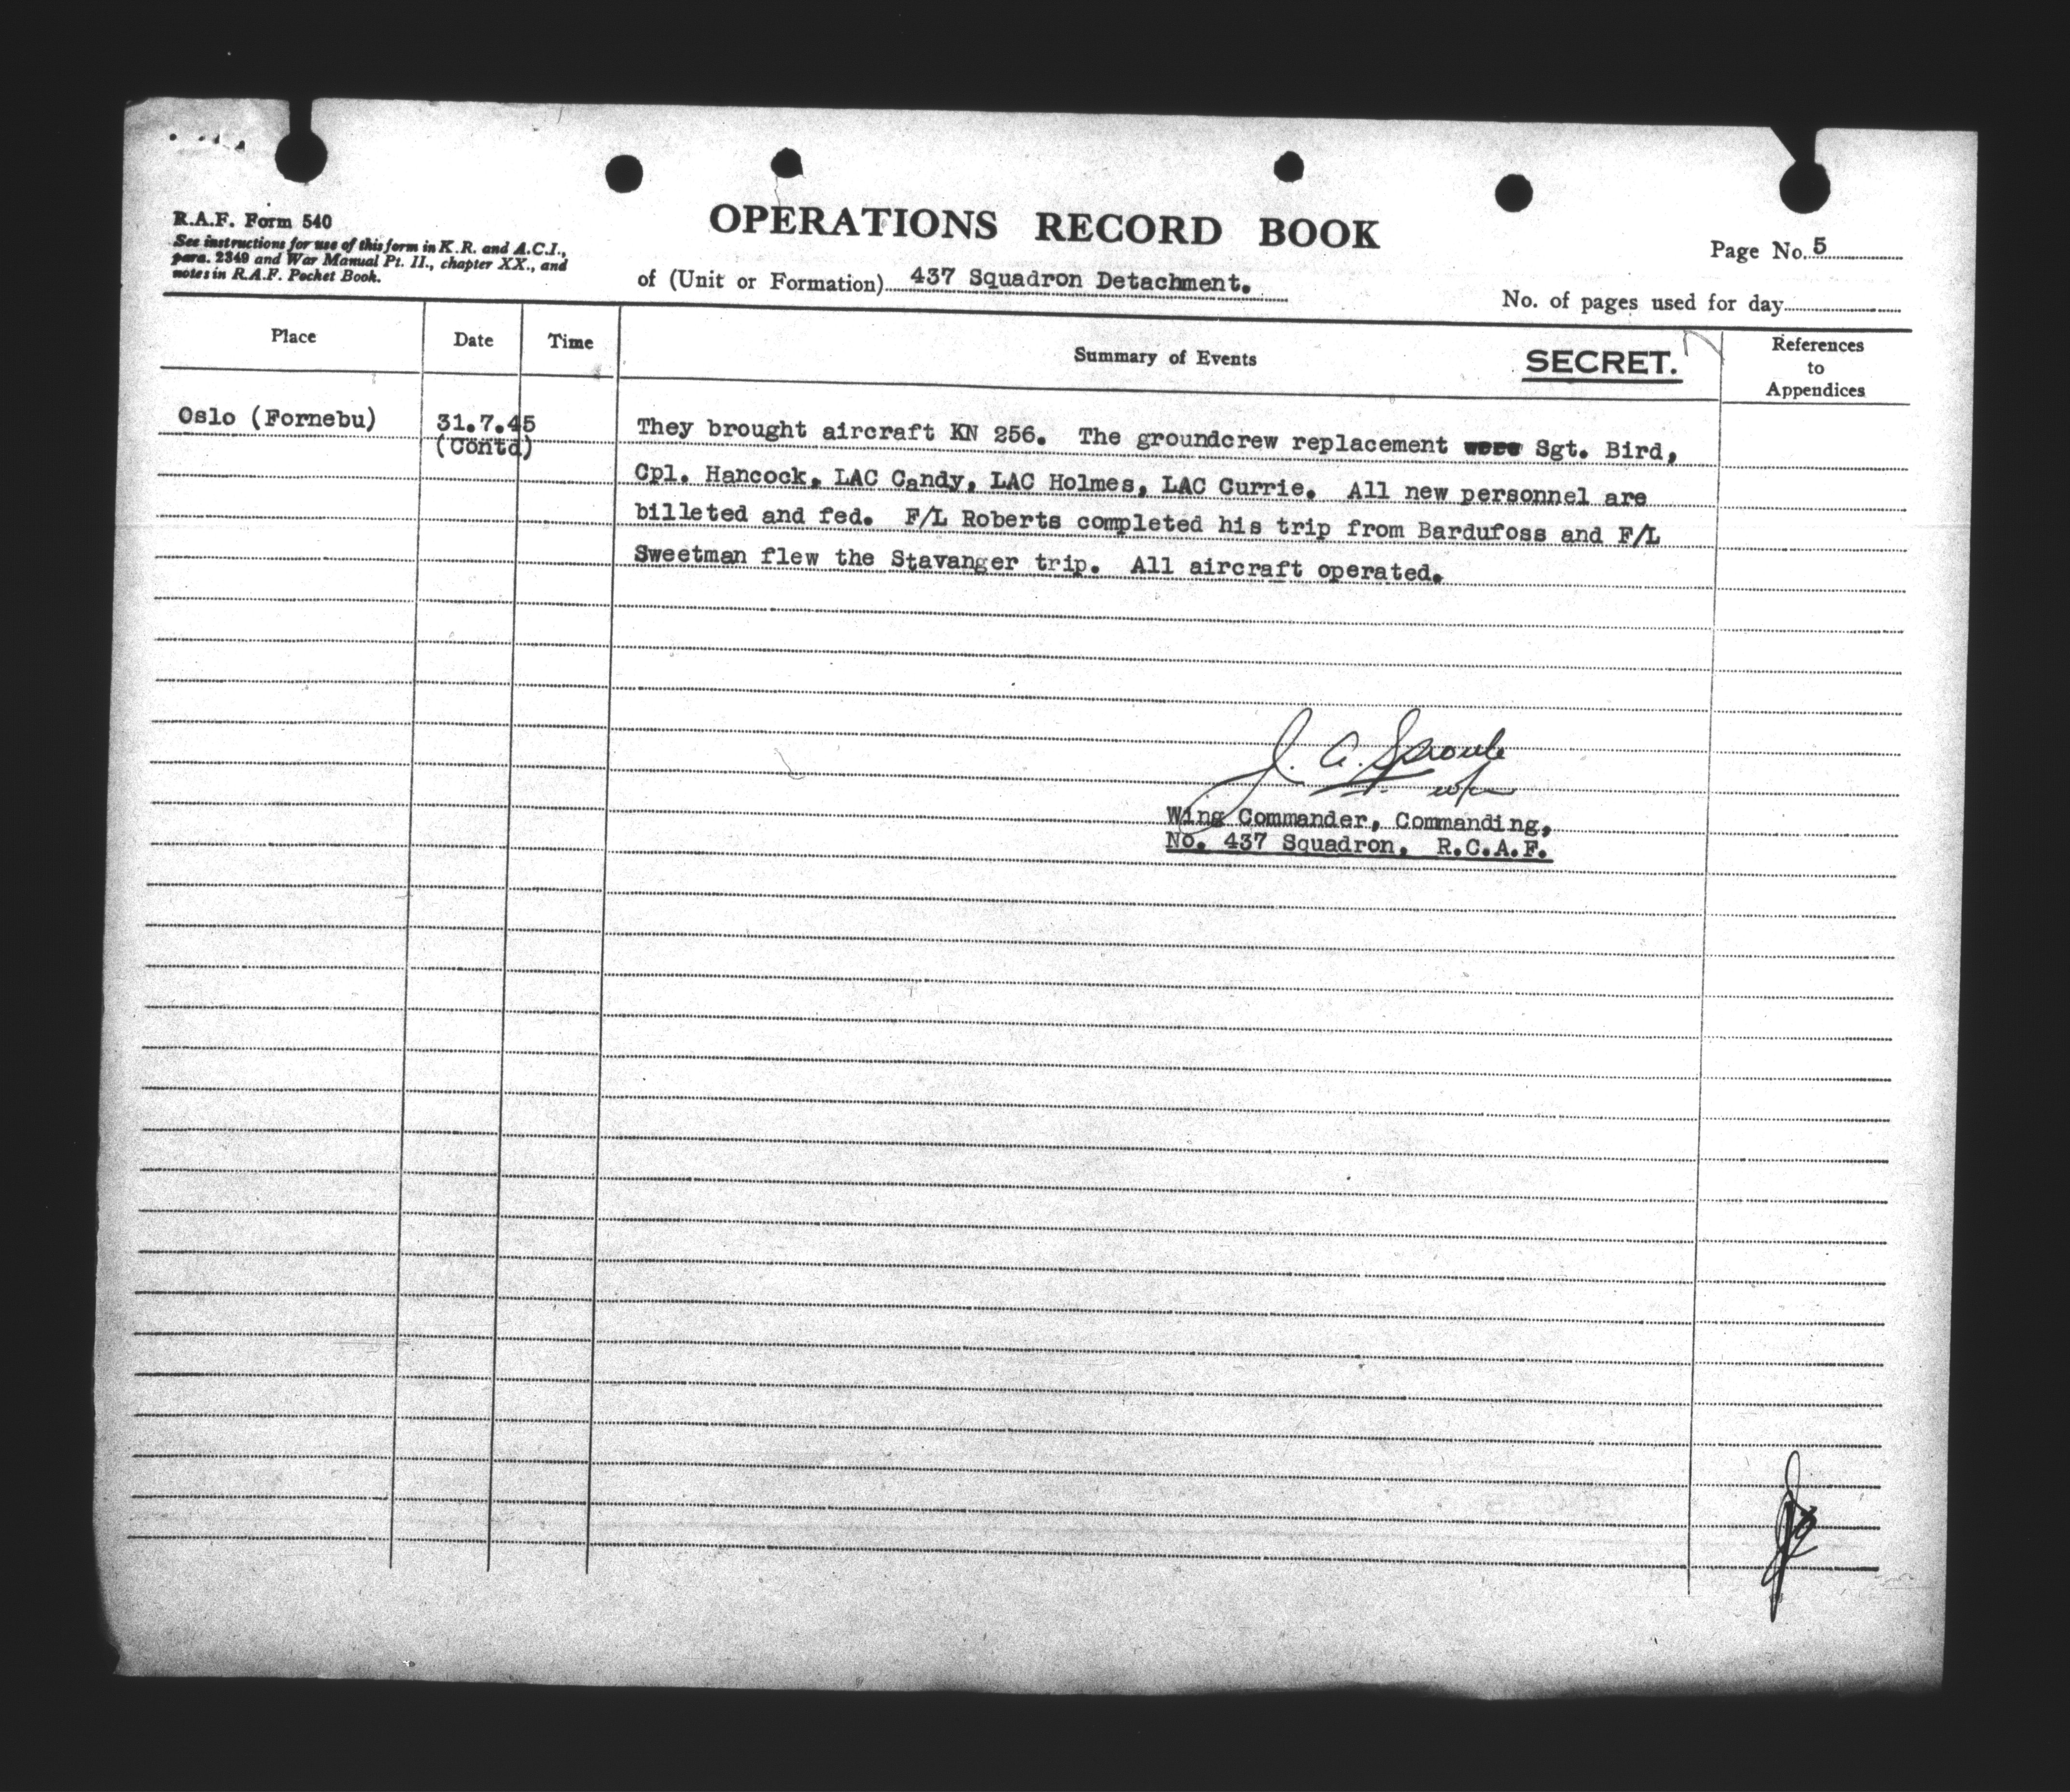 R.A.F. Form 540
See instructions for use of this form in K.R. and A.C.I.,
para. 2349 and War Manual Pt. II., chapter XX., and
notes in R.A.F. Pocket Book.
OPERATIONS RECORD BOOK
of (Unit or Formation) 437 Squadron Detachment.
Page No. 5
No. of pages used for day
Place
Date
Time
Summary of Events
SECRET.
References
to
Appendices
Oslo (Fornebu)
31.7.45
(Contd)
They brought aircraft KN 256. The groundcrew replacement were Sgt. Bird,
Cpl. Hancock, LAC Candy, LAC Holmes, LAC Currie. All new personnel are
billeted and fed. F/L Roberts completed his trip from Bardufoss and F/L
Sweetman flew the Stavanger trip. All aircraft operated.
J. A. Sproule
Wing Commander, Commanding,
No. 437 Squadron, R.C.A.F.